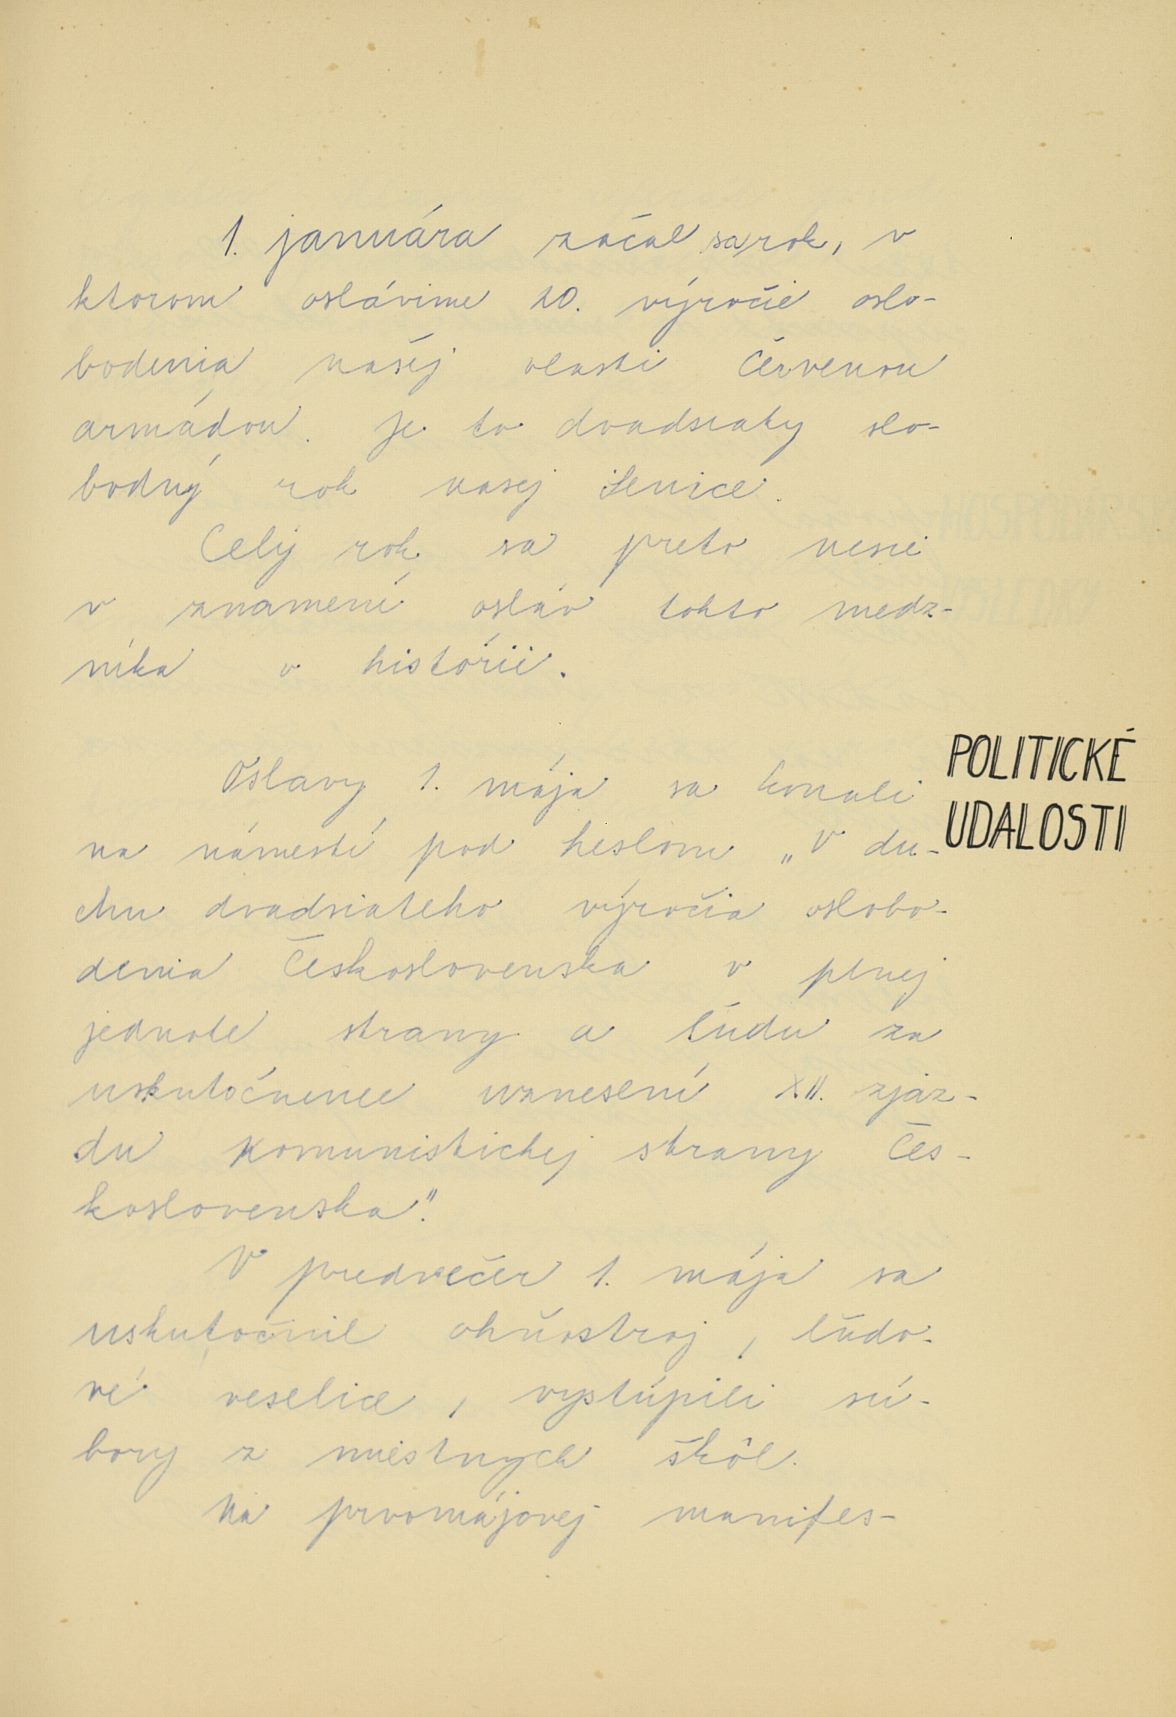 1. januára začal sa rok, v
ktorom oslávime 20. výročie oslo-
bodenia našej vlasti Červenou
armádou. Je to dvadsiaty slo-
bodný rok nasej Senice.
Celý rok sa preto nesie
v znamení osláv tohto medz-
níka v histórii.
POLITICKÉ
UDALOSTI
Oslavy 1. mája sa konali
na námestí pod heslom „V du-
chu dvadsiateho výročia oslobo-
denia Československa v plnej
jednote strany a ľudu za
uskutočnenie uznesení XII. zjaz-
du Komunistickej strany Čes-
koslovenska".
V predvečer 1. mája sa
uskutočnil ohňostroj, ľudo-
vé veselice, vystúpili sú-
bory z miestnych škôl.
Na prvomájovej manifes-